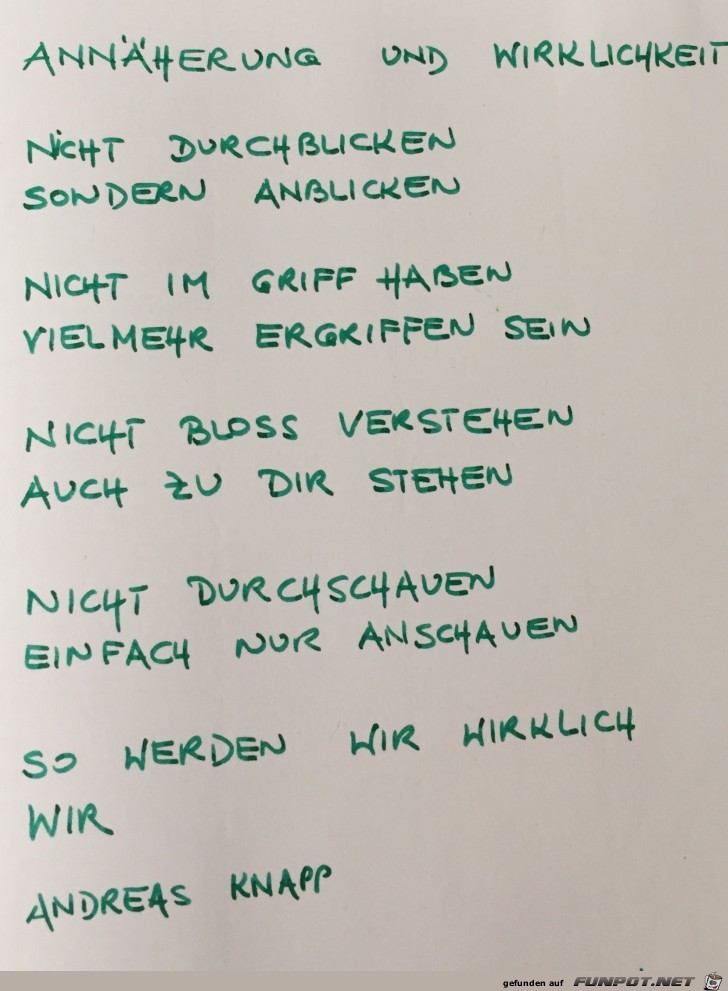 ANNÄHERUNG UND WIRKLICHKEIT
NICHT DURCHBLICKEN
SONDERN ANBLICKEN
NICHT IM GRIFF HABEN
VIELMEHR ERGRIFFEN SEIN
NICHT BLOSS VERSTEHEN
AUCH ZU DIR STEHEN
NICHT DURCHSCHAUEN
EINFACH NUR ANSCHAUEN
SO WERDEN WIR WIRKLICH
WIR
ANDREAS KNAPP
gefunden auf FUNPOT.NET